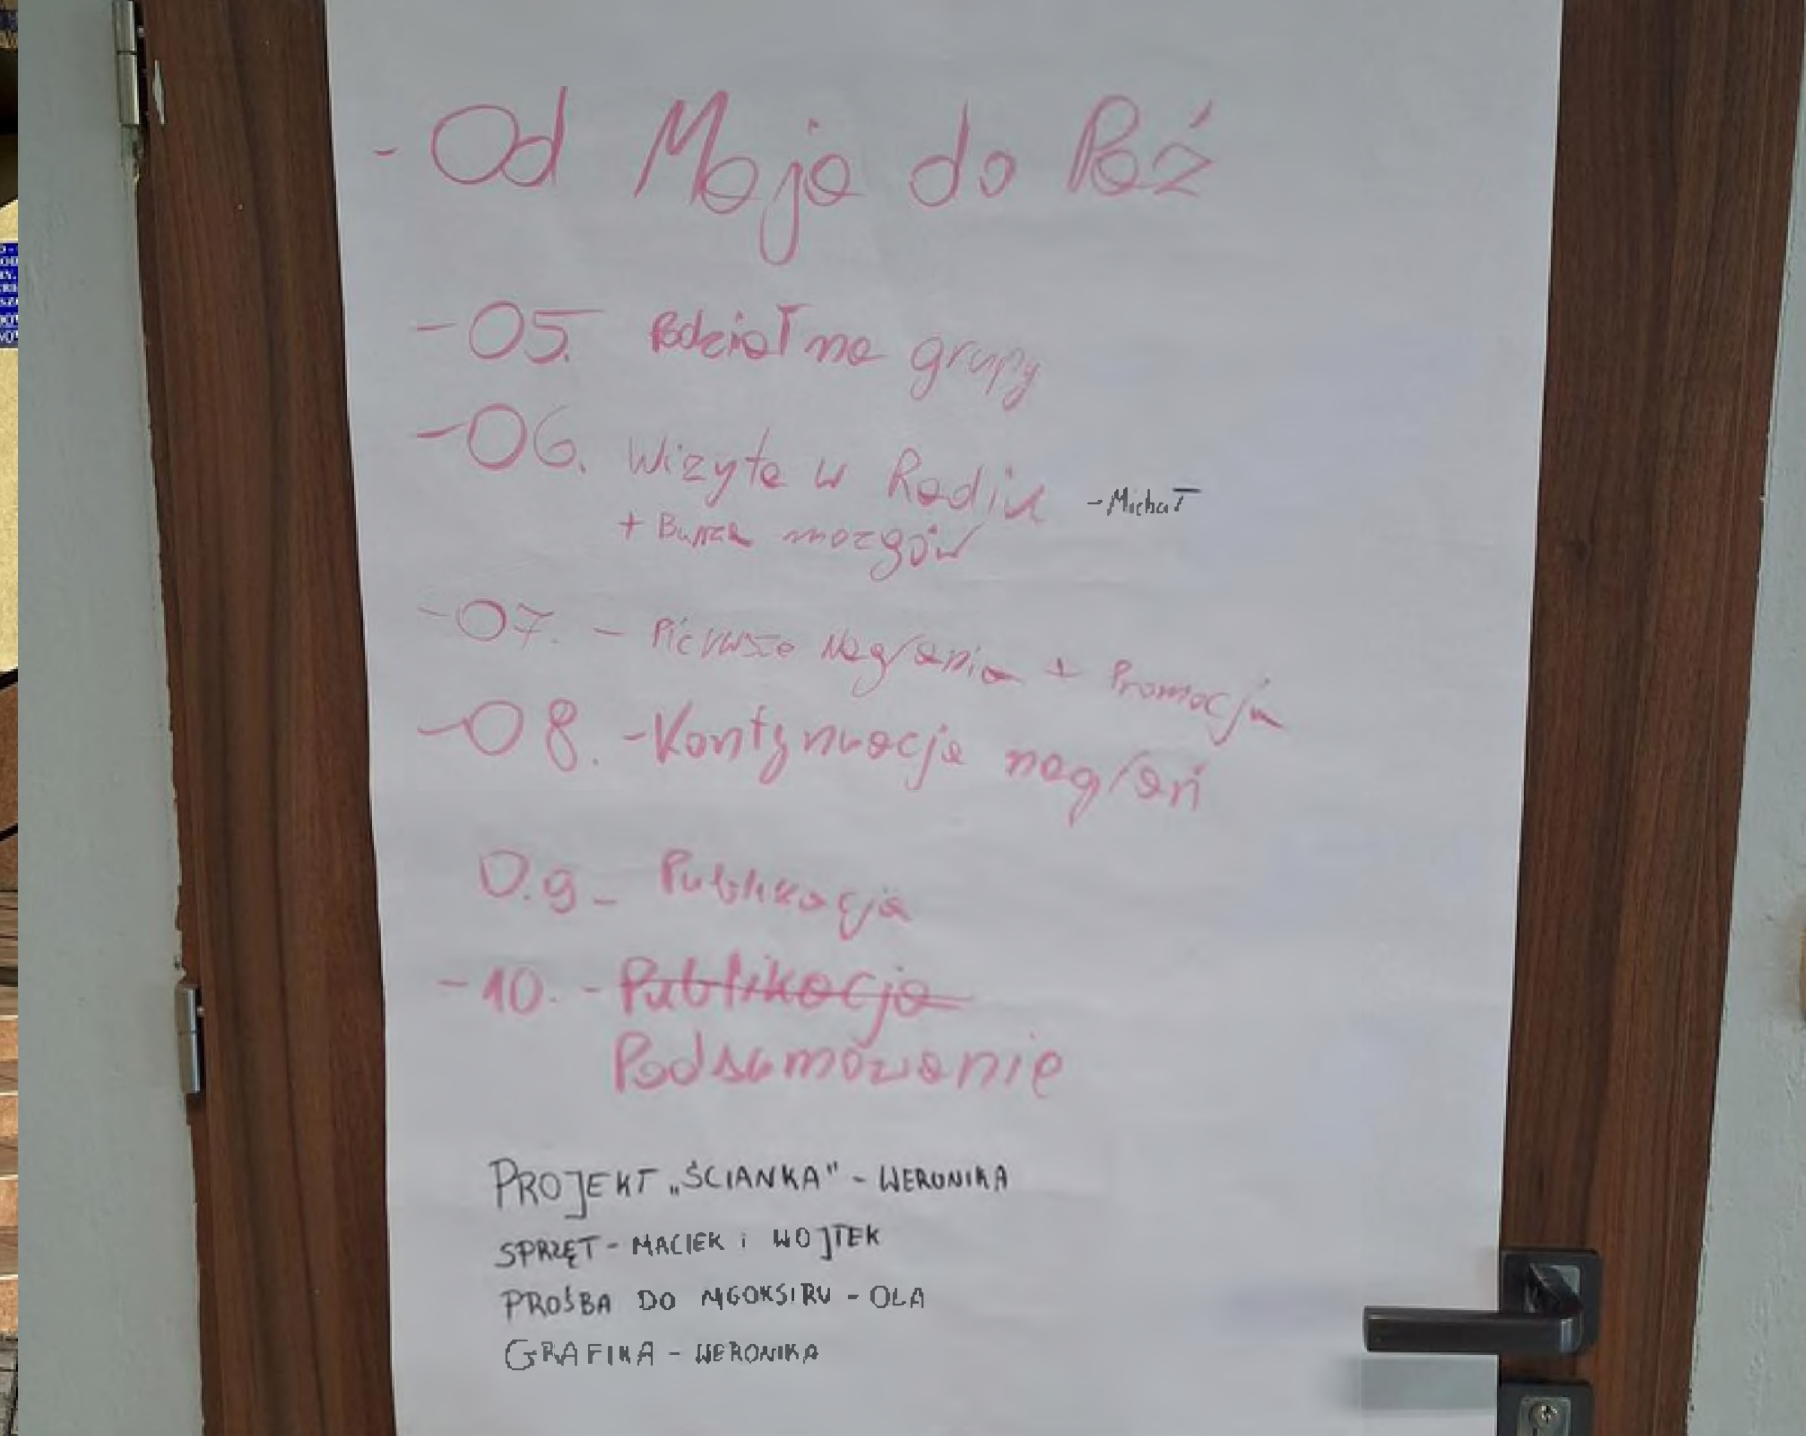 - Od Maja do Paź
- 05. Podział na grupy
- 06. Wizyta w Radiu - Michał
+ Burza mozgów
- 07. - Pierwsze Nagrania + Promocja
- 08. - Kontynuacja nagrań
0.9 - Publikacja
- 10. - Publikacja
Podsumowanie
PROJEKT „ŚCIANKA" - WERONIKA
SPRZĘT - MACIEK i WOJTEK
PROŚBA DO MGOKSIRU - OLA
GRAFIKA - WERONIKA